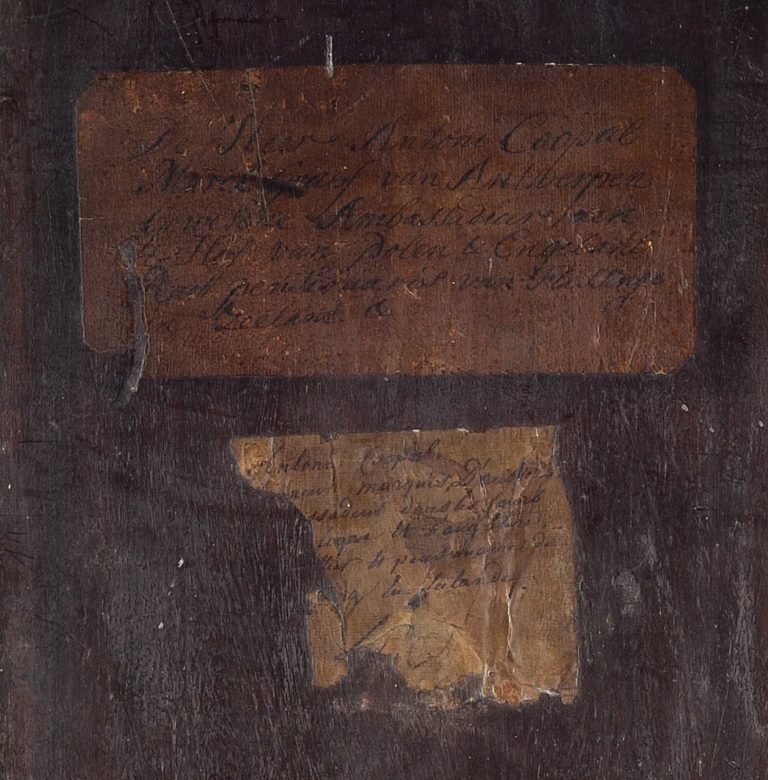 De Heer Antoni Coopal
Marck Graef van Antwerpen
Ambassadeur aen
t Hof van Polen & Engelant
Raet pensionaris van
in Zeelant &
Antoni Coopal
marquis D'anvers
dans les Cours
& D'angleterre
& pensionaire de
en Zelande